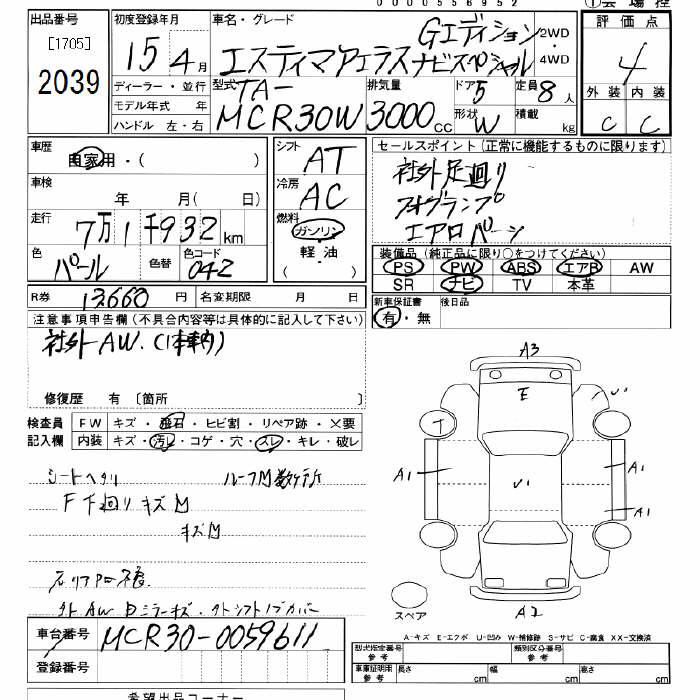 0000556952
①会場控
出品番号
[1705]
2039
初度登録年月
15年4月
ディーラー・並行
モデル年式 年
ハンドル 左・右
車名・グレード
Gエディション
エスティマアエラス ナビスペシャル
2WD
・
4WD
型式 TA-
MCR30W
排気量
3000cc
ドア 5
定員 8人
形状 W
積載 kg
評価点
4
外装 内装
C C
車歴
自家用・( )
車検
年 月( 日)
走行
7万1千932km
色
パール
色替
色コード
042
シフト
AT
冷房
AC
燃料
ガソリン
・
軽・油
( )
セールスポイント(正常に機能するものに限ります)
社外足廻り
フォグランプ
エアロパーツ
装備品(純正品に限り○をつけてください)
PS PW ABS エアB AW
SR ナビ TV 本革
新車保証書
有・無
後日品
R券 13660円
名変期限 月 日
注意事項申告欄(不具合内容等は具体的に記入して下さい)
社外AW.(1本車内)
修復歴 有〔箇所 〕
検査員
記入欄
FW キズ・飛石・ヒビ割・リペア跡・X要
内装 キズ・汚レ・コゲ・穴・スレ・キレ・破レ
シートヘタリ
F下廻りキズ
キズ
A3
E
A1
A1
A1
A2
スペア
A-キズ E-エクボ U-凹み W-補修跡 S-サビ C-腐食 XX-交換済
車台番号
MCR30-0059611
登録番号
型式指定番号
参考
類別区分番号
参考
車庫証明用
参考
長さ cm
幅 cm
高さ cm
希望出品コーナー